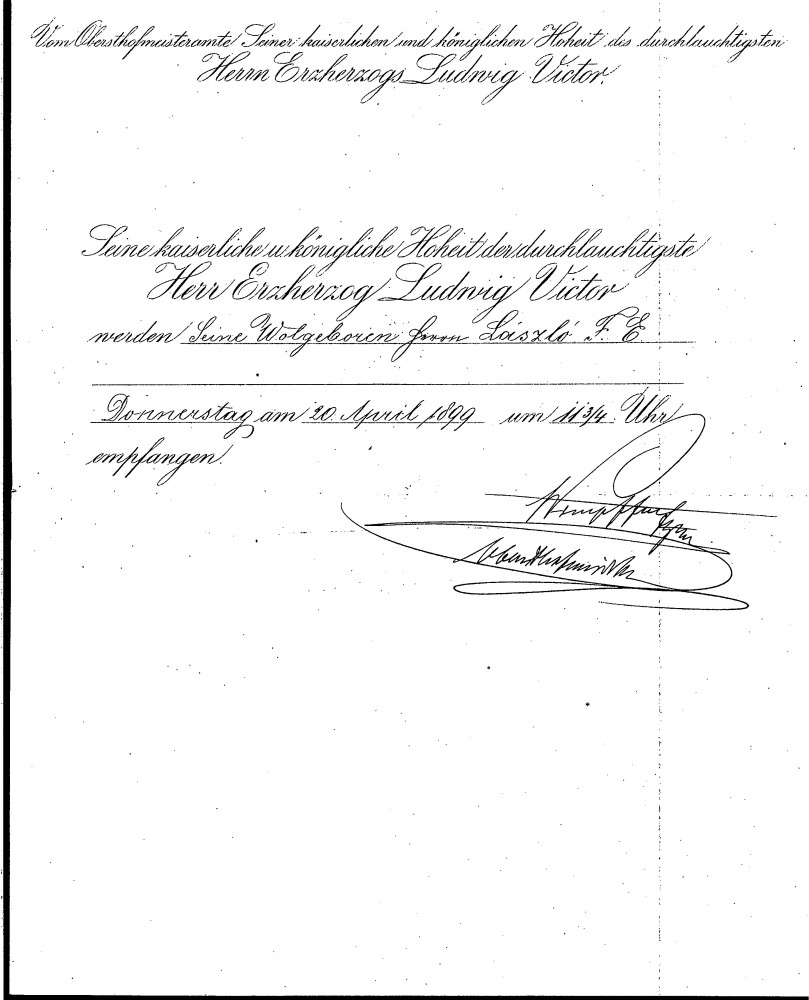 Vom Obersthofmeisteramte Seiner kaiserlichen und königlichen Hoheit des durchlauchtigsten
Herrn Erzherzogs Ludwig Victor.
Seine kaiserliche u königliche Hoheit der durchlauchtigste
Herr Erzherzog Ludwig Victor
werden Seine Wolgeboren Herrn László F. E.
Donnerstag am 20. April 1899 um 11 3/4 Uhr
empfangen.